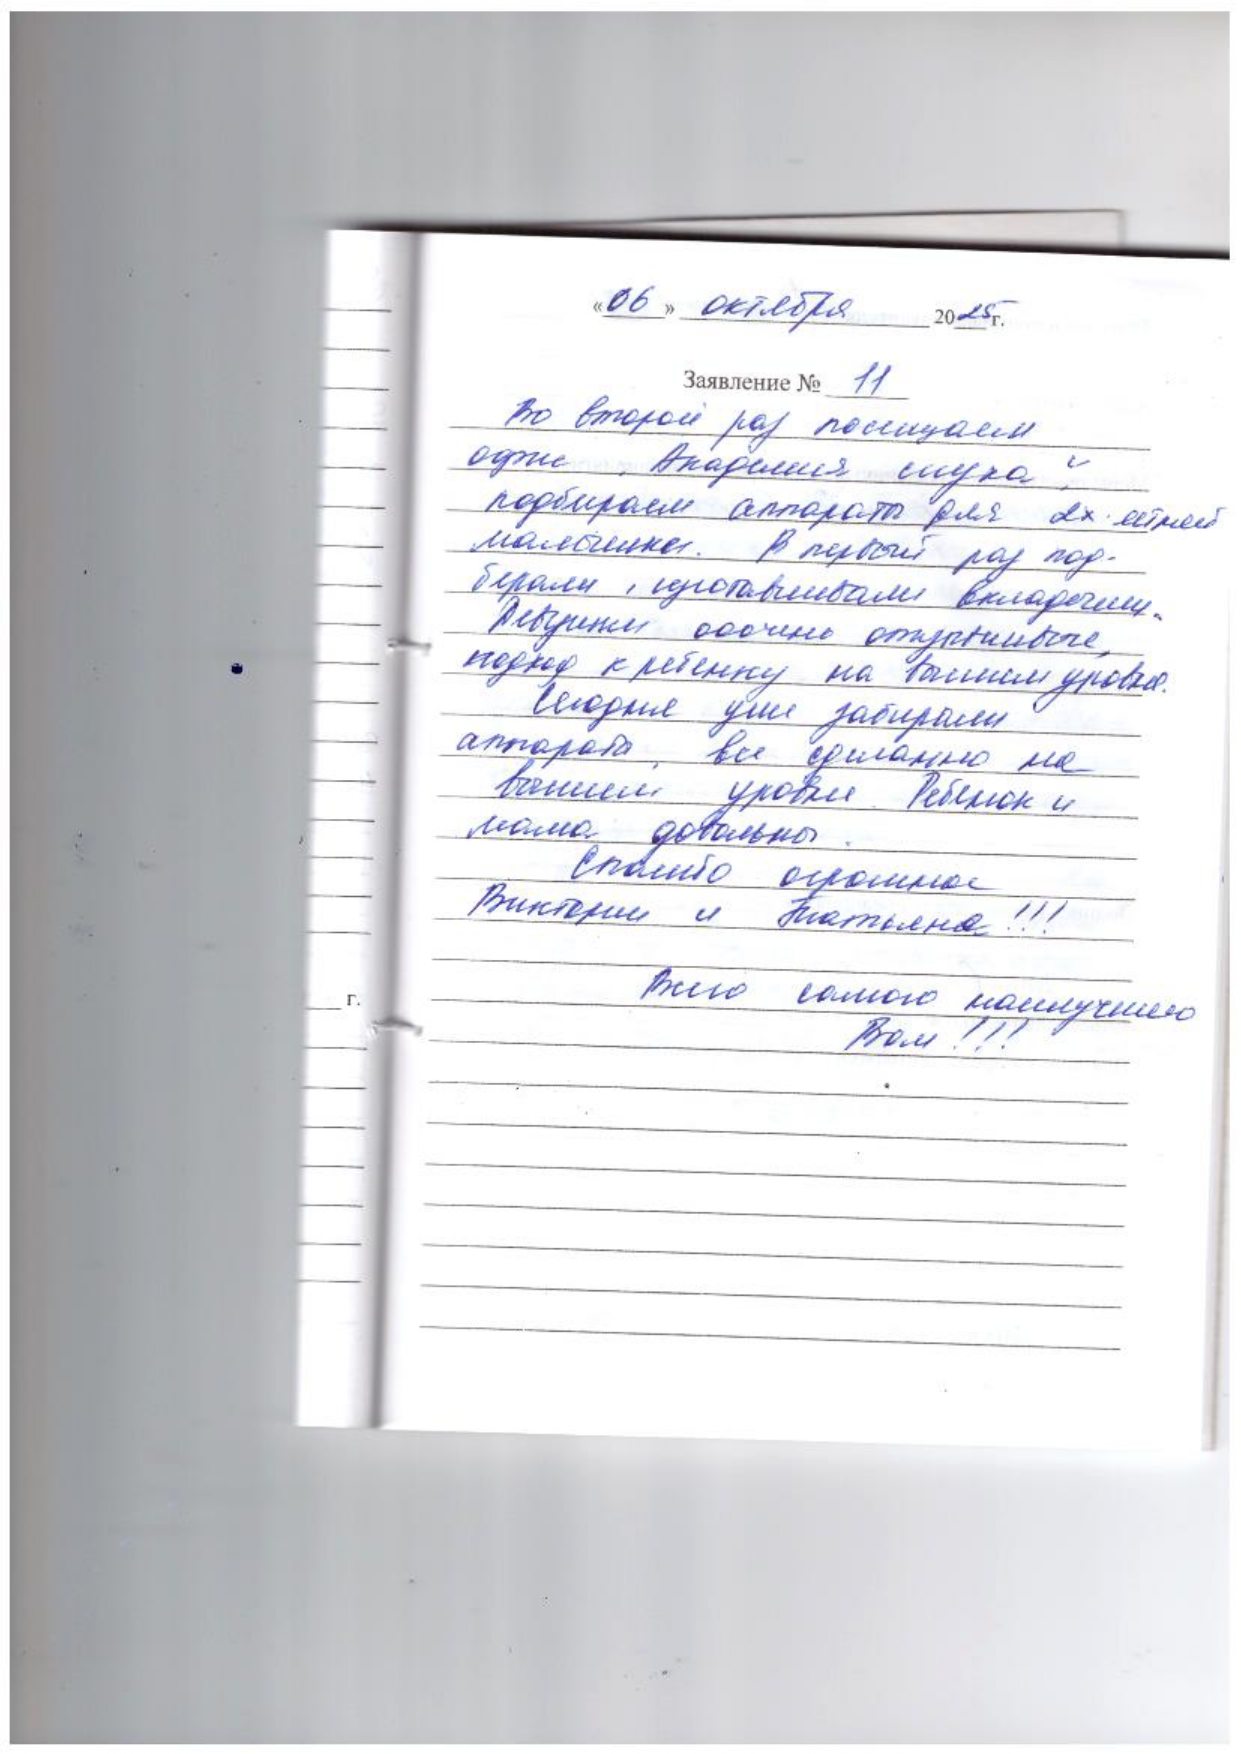 «06» октября 2025г.
Заявление № 11
Во второй раз посещаем
офис "Академия слуха",
подбираем аппараты для 2х летней
мальчика. В первый раз под-
берали, изготавливали вкладочки.
Девушки ооочень отзывчивые,
подход к ребенку на вышем уровне.
Сегодня уже забирали
аппарата, все сделанно на
вышем уровне. Ребенок и
мама довольны.
Спасибо огромное
Виктории и Татьяне!!!
Всего самого наилучшего
Вам!!!
г.